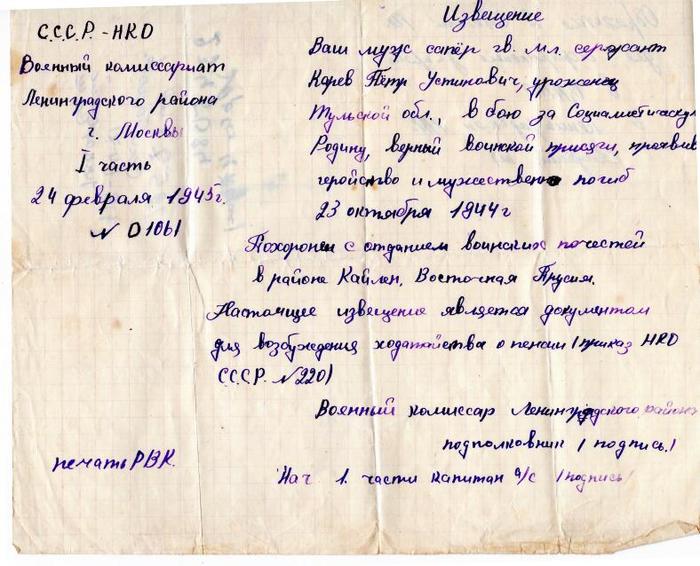 С.С.С.Р. - НКО
Военный комиссариат
Ленинградского района
г. Москвы
I часть
24 февраля 1945г.
N 01061
Извещение
Ваш муж сапёр гв. мл. сержант
Карев Пётр Устинович, уроженец
Тульской обл., в бою за Социалистическую
Родину, верный воинской присяги, проявив
геройство и мужественно погиб
23 октября 1944г
Похоронен с отданием воинских почестей
в районе Кайлен, Восточная Прусия.
Настоящее извещение является документом
для возбуждения ходатайства о пенсии /приказ НКО
С.С.С.Р. N220/
Военный комиссар Ленинградского района
подполковник /подпись./
Нач 1. части капитан а/с /подпись/
печать РВК.